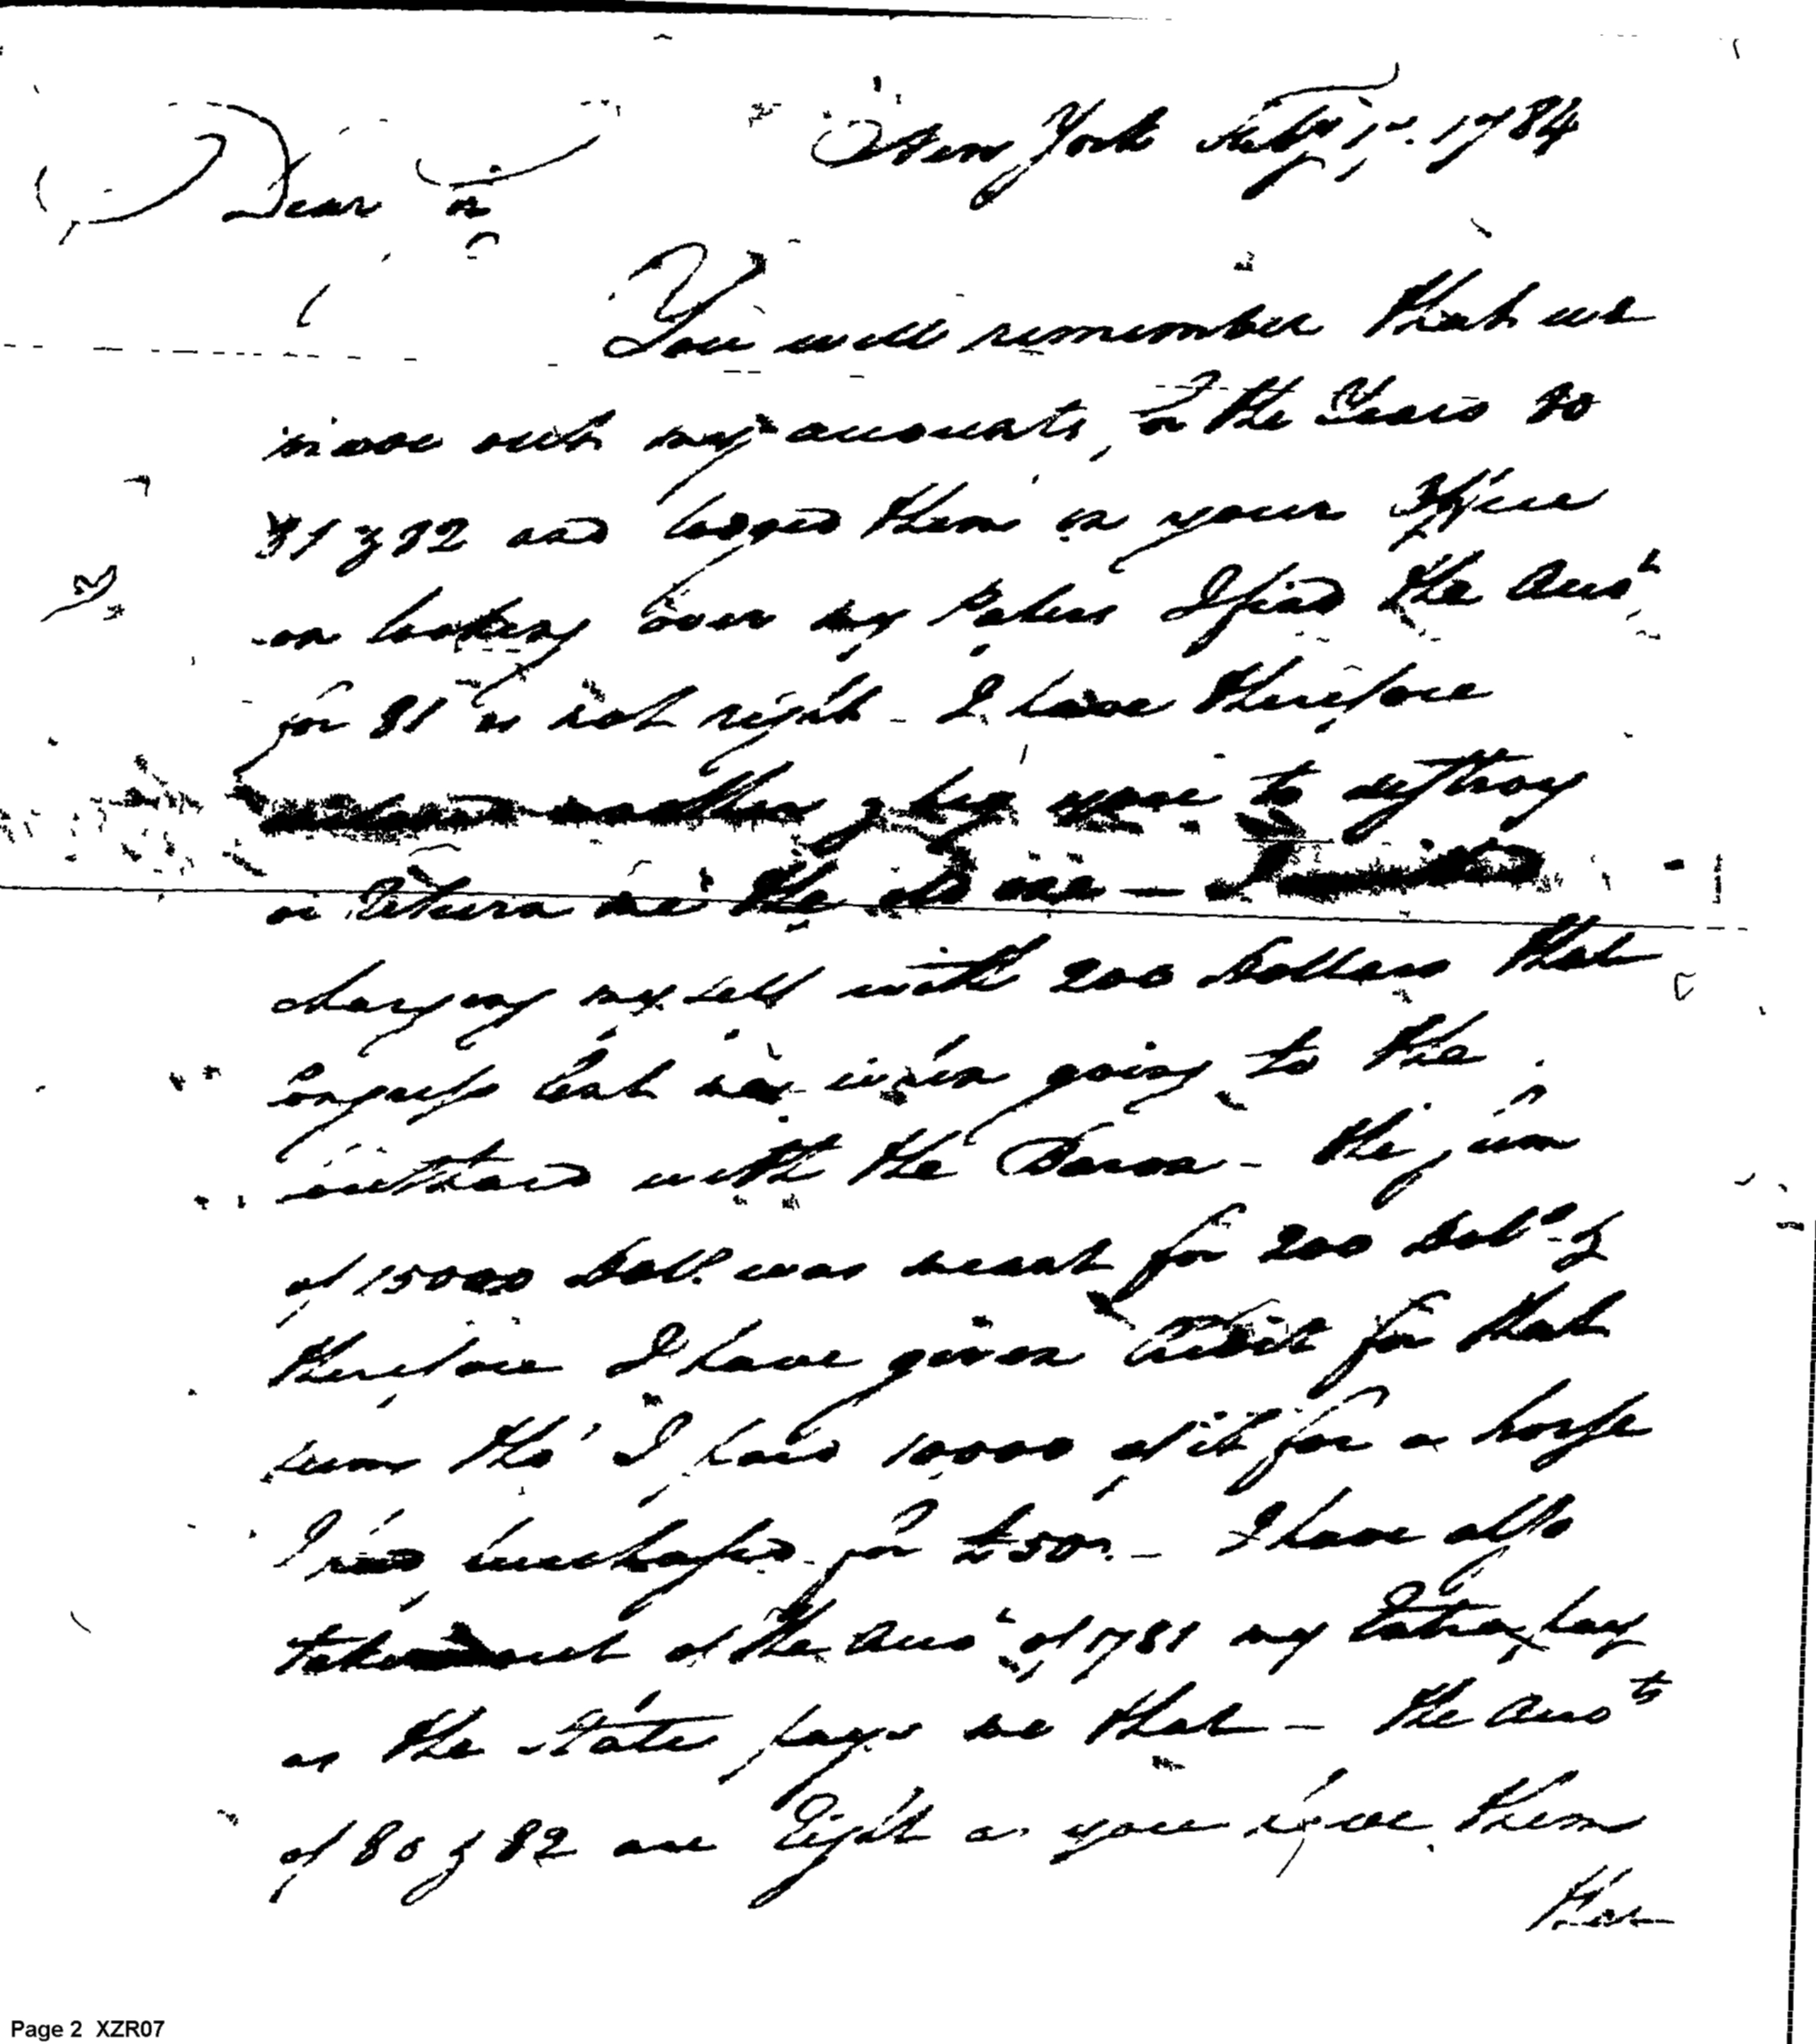 New York July 1st. 1784
Dear Sir
You will remember that we
made out my accounts, for the Years 80
81 & 82 and lodged them in your Office
on looking over my Papers I find the Acco.t
for 81 is not right - I have therefore
another & beg you to destroy
or return me the old one — I
charging my self with 200 dollars that
Congress lent me when going to the
southward with the Baron - the sum
of 15000 doll.s was meant for 200 dol.s &
therefore I have given Credit for that
sum tho' I paid 10000 of it for a horse
I had purchased for - I have also
taken out of the Acco.t of 1781 my Extra pay
as the State pays me that - the Acco.ts
of 80 & 82 are Right as you have them
that
Page 2 XZR07